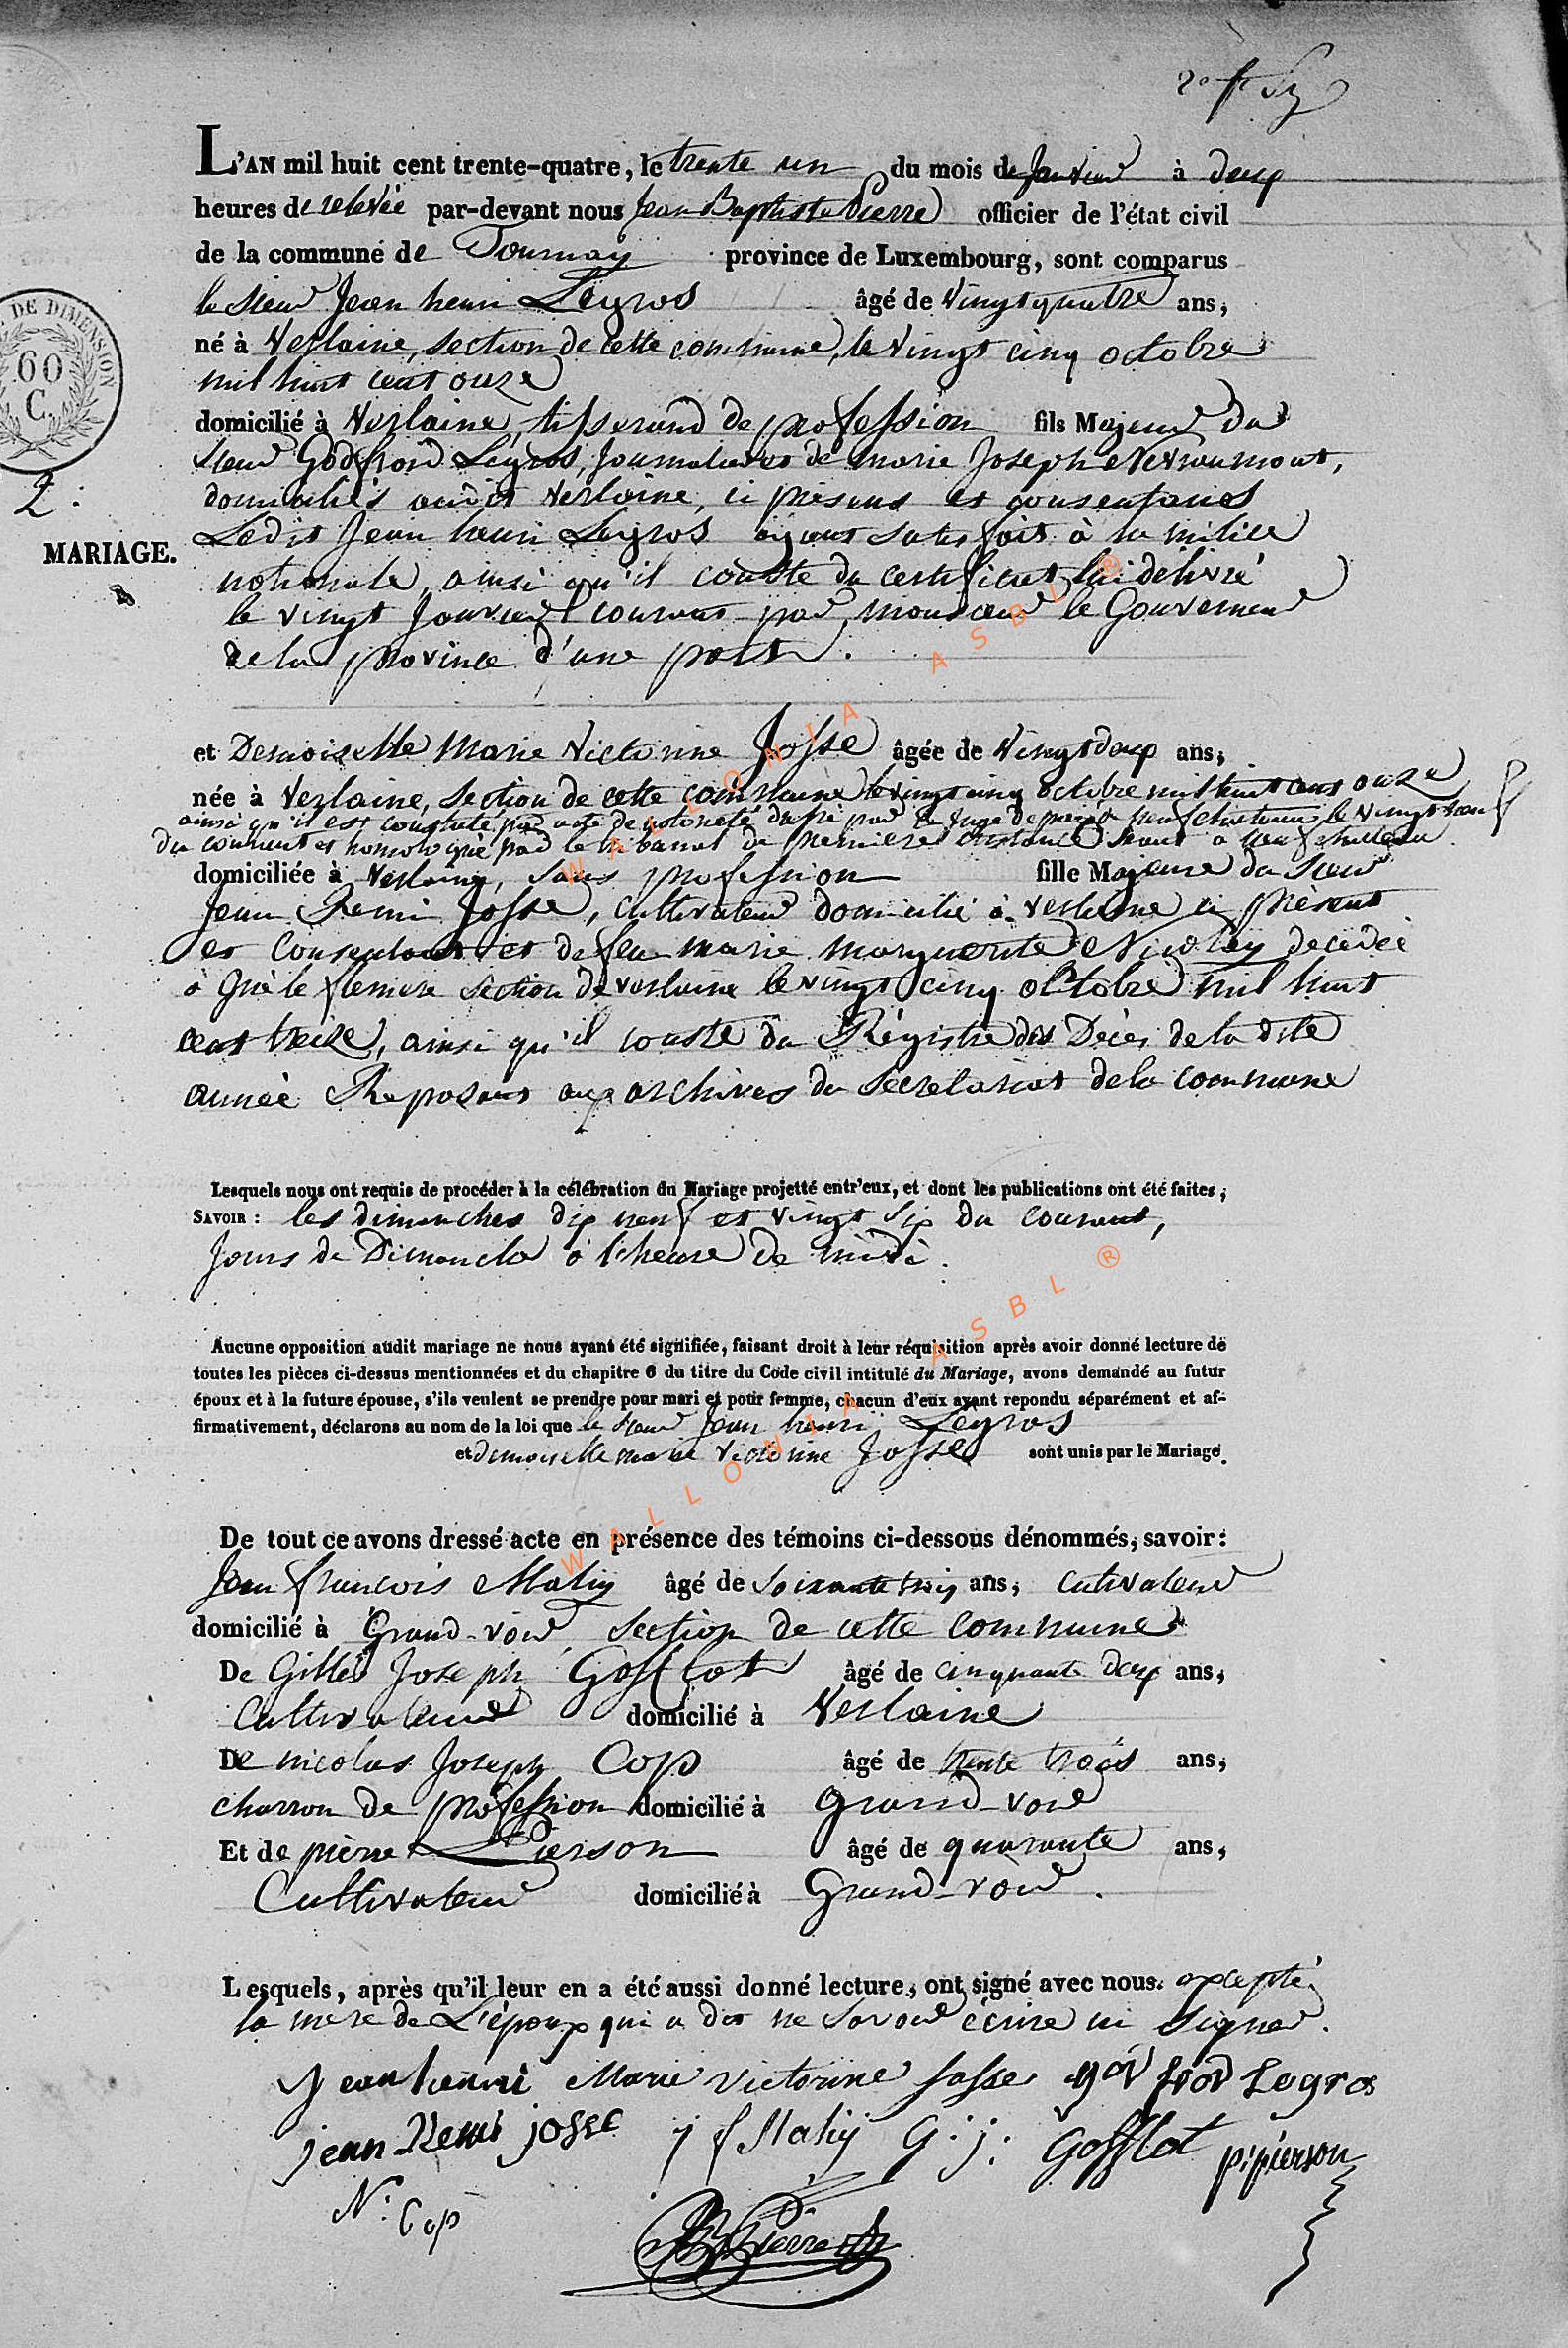 L'AN mil huit cent trente-quatre, le trente un du mois de Janvier à deux
heures de relevée par-devant nous Jean Baptiste Pierre officier de l'état civil
de la commune de Tournay province de Luxembourg, sont comparus
le sieur Jean henri Legros âgé de Vingt quatre ans,
né à Verlaine, section de cette commune, le vingt cinq octobre
mil huit cent onze
domicilié à Verlaine, tisserand de profession fils Majeur du
sieur Godfroid Legros, Journalier et de marie Joseph Nevraumont,
domiciliés audit Verlaine, ci présens et consentans
Ledit Jean henri Legros ayant satisfait à la milice
nationale, ainsi qu'il conste du certificat lui délivré
le vingt Janvier courant par monsieur le Gouverneur
de la province d'une part.
60
C.
DE DIMENSION
2.
MARIAGE.
et Demoiselle Marie Victorine Josse âgée de Vingt deux ans,
née à Verlaine, section de cette commune le vingt cinq octobre mil huit cent onze
ainsi qu'il est constaté par acte de notoriété par le Juge de paix à neufchateau le vingt neuf
du courant et homologué par le tribunal de première instance séant à neufchateau
domiciliée à Verlaine, sans profession fille Majeure du sieur
Jean Remi Josse, cultivateur domicilié à verlaine ci présent
et consentant et de feue marie marguerite Nicolay décédée
à section de verlaine le vingt cinq octobre mil huit
cent treize, ainsi qu'il conste du Régistre des Décès de la dite
année Reposant aux archives du secretariat de la commune
Lesquels nous ont requis de procéder à la célébration du Mariage projetté entr'eux, et dont les publications ont été faites;
SAVOIR : les dimanches dix neuf et vingt six du courant,
Jours de Dimanche à l'heure de midi.
Aucune opposition audit mariage ne nous ayant été signifiée, faisant droit à leur réquisition après avoir donné lecture de
toutes les pièces ci-dessus mentionnées et du chapitre 6 du titre du Code civil intitulé du Mariage, avons demandé au futur
époux et à la future épouse, s'ils veulent se prendre pour mari et pour femme, chacun d'eux ayant repondu séparément et af-
firmativement, déclarons au nom de la loi que le sieur Jean henri Legros
et demoiselle marie victorine Josse sont unis par le Mariage.
De tout ce avons dressé acte en présence des témoins ci-dessous dénommés, savoir:
Jean françois Mahy âgé de soixante trois ans, cutivateur
domicilié à Grand-voir section de cette commune
De Gilles Joseph Gofflot âgé de cinquante deux ans,
Cultivateur domicilié à Verlaine
De nicolas Joseph Cop âgé de trente trois ans,
charron de profession domicilié à Grand-voir
Et de pierre Pierson âgé de quarante ans,
Cultivateur domicilié à Grand-voir.
Lesquels, après qu'il leur en a été aussi donné lecture, ont signé avec nous. excepté
la mere de L'époux qui a dit ne savoir écrire ni signer.
Jean henri Marie victorine Josse god froid Legros
jean Remi josse j f Mahy G. j. Gofflot p. pierson
N. Cop
JB Pierre
WALLONIA ASBL ®
WALLONIA ASBL ®